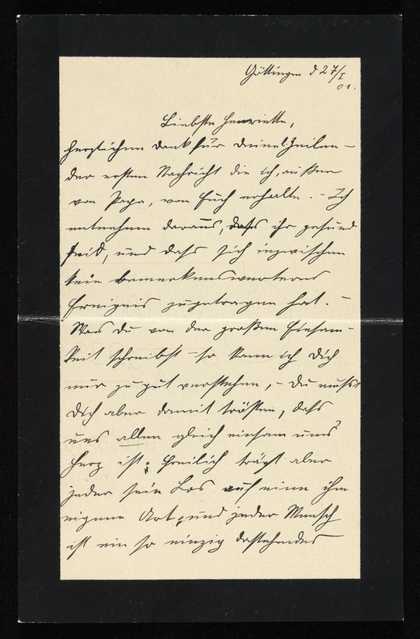 Göttingen d 27/I
01.
Liebste Henriette,
Herzlichen Dank für deine Zeilen –
der ersten Nachricht die ich, außer
von Papa, von Euch erhalte. – Ich
entnehme daraus, dass ihr gesund
seid, und dass sich inzwischen
kein bemerkenswertes
Ereignis zugetragen hat. –
Was du von der großen Einsam-
keit schreibst – so kann ich Dich
nur zu gut verstehen, – du musst
Dich aber damit trösten, dass
uns allen gleich einsam ums
Herz ist; freilich trägt aber
jeder sein Los auf eine ihm
eigene Art, und jeder Mensch
ist ein so einzig dastehendes